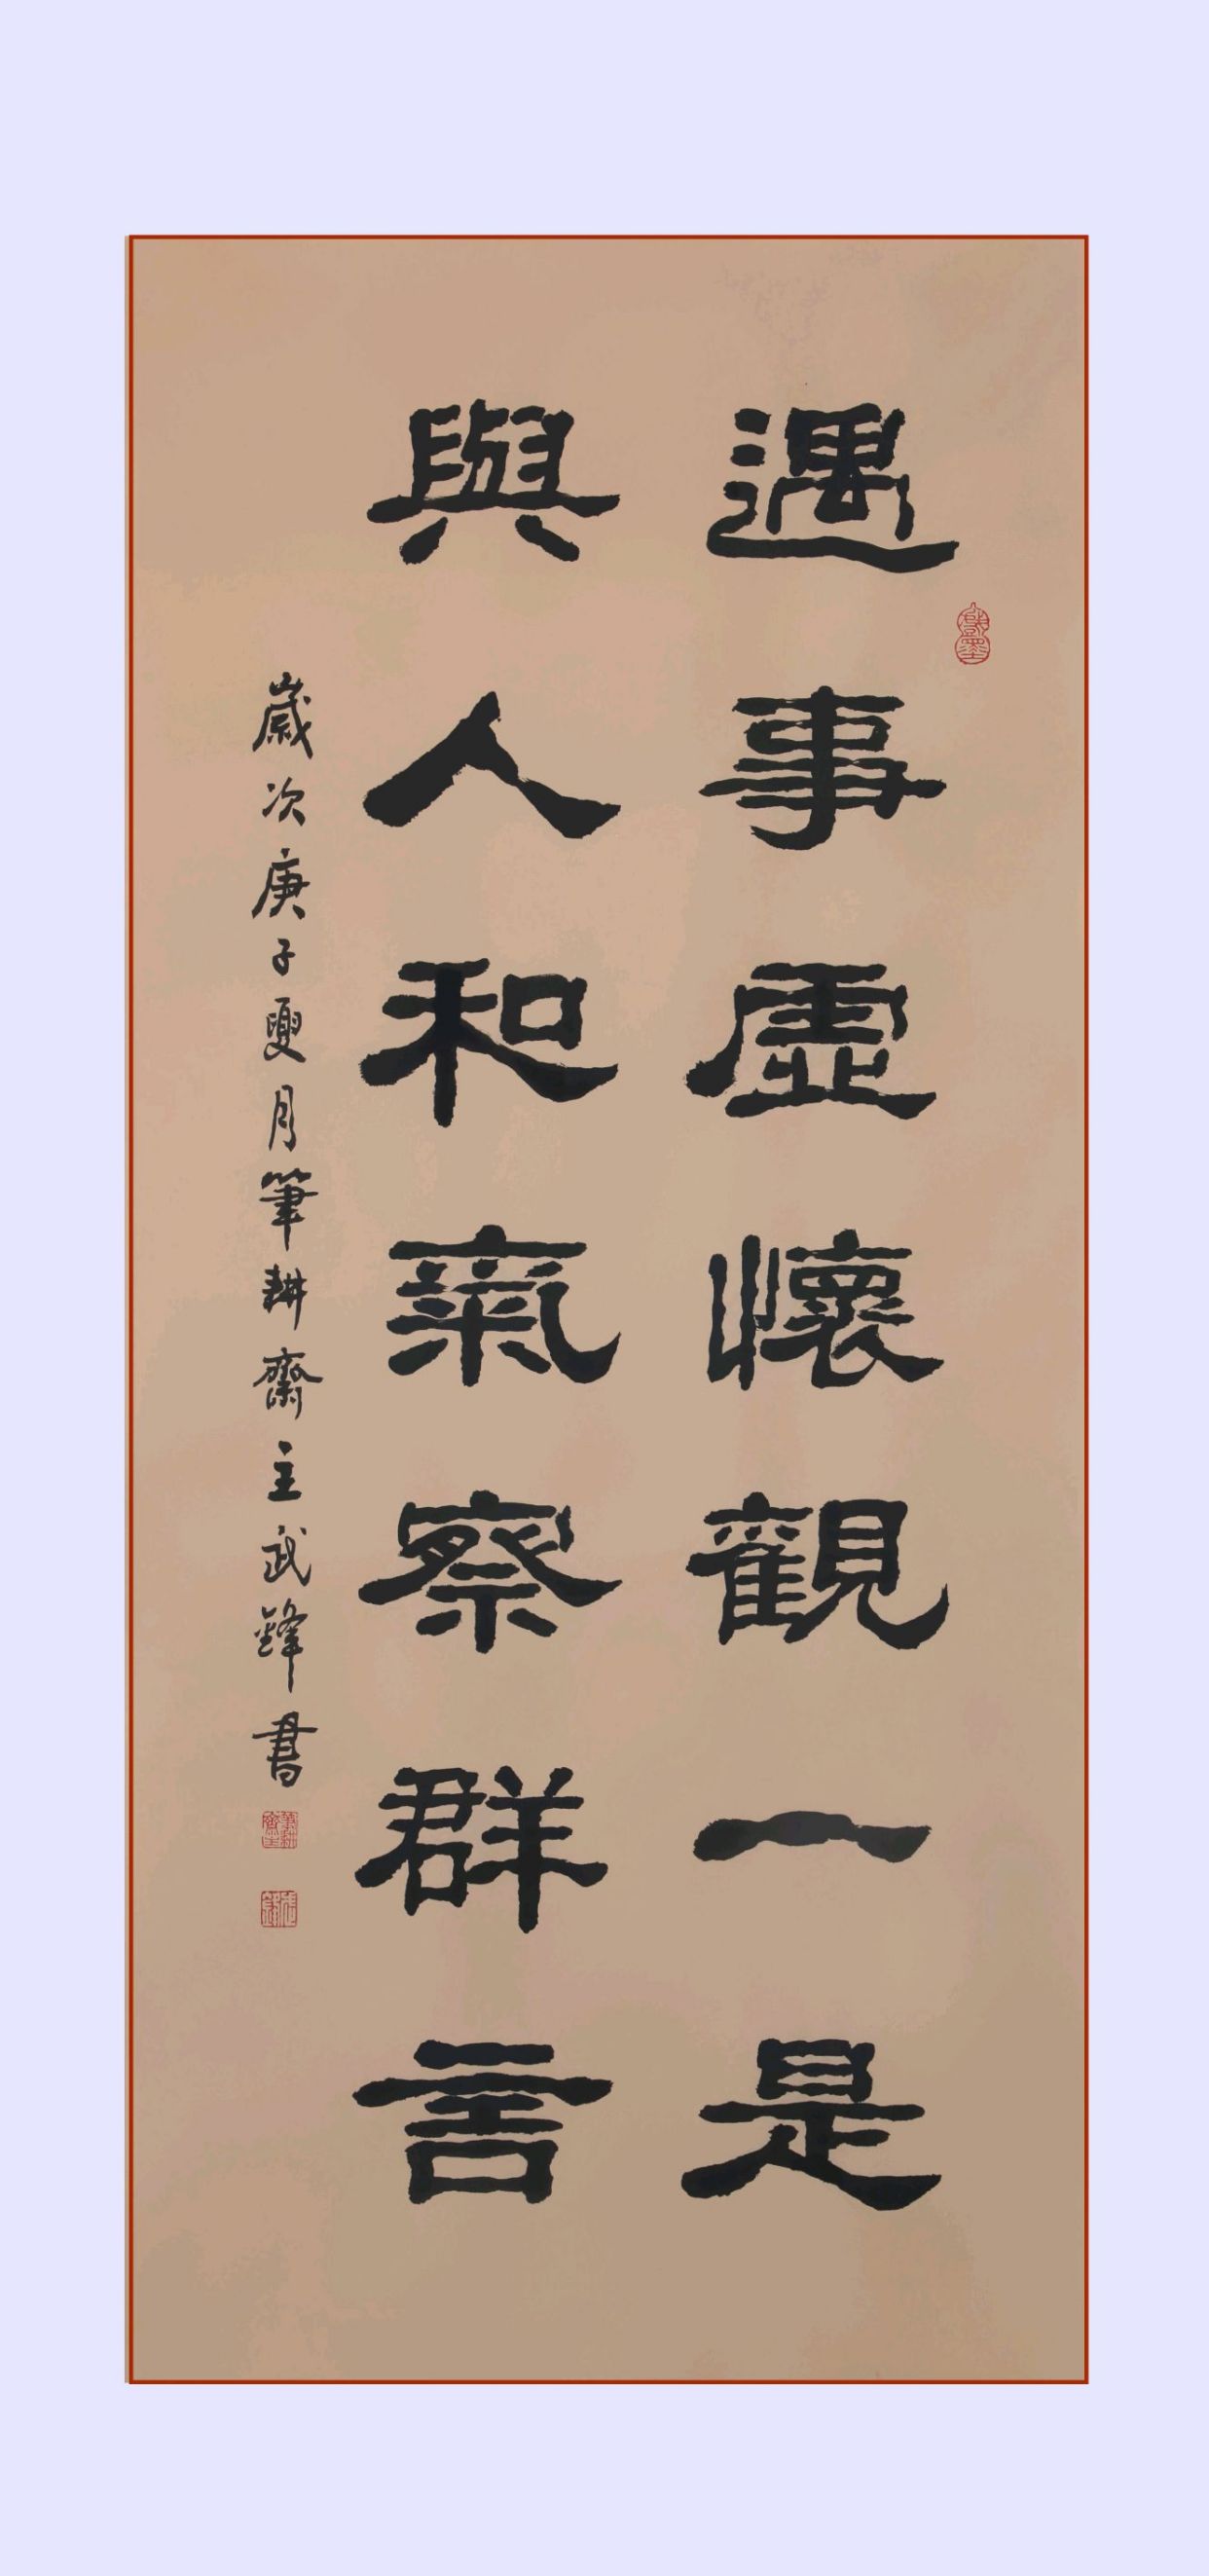 遇事虛懷觀一是
與人和氣察群言
歲次庚子夏月筆耕齋主武鋒書